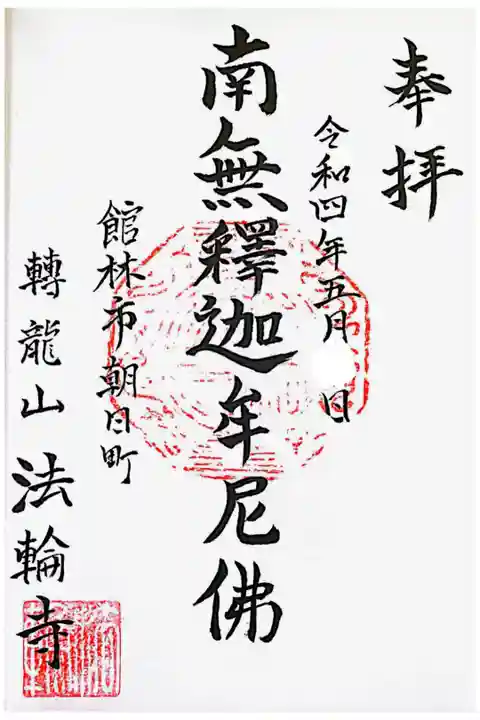 奉拝
令和四年五月 日
南無釋迦牟尼佛
館林市朝日町
轉龍山 法輪寺